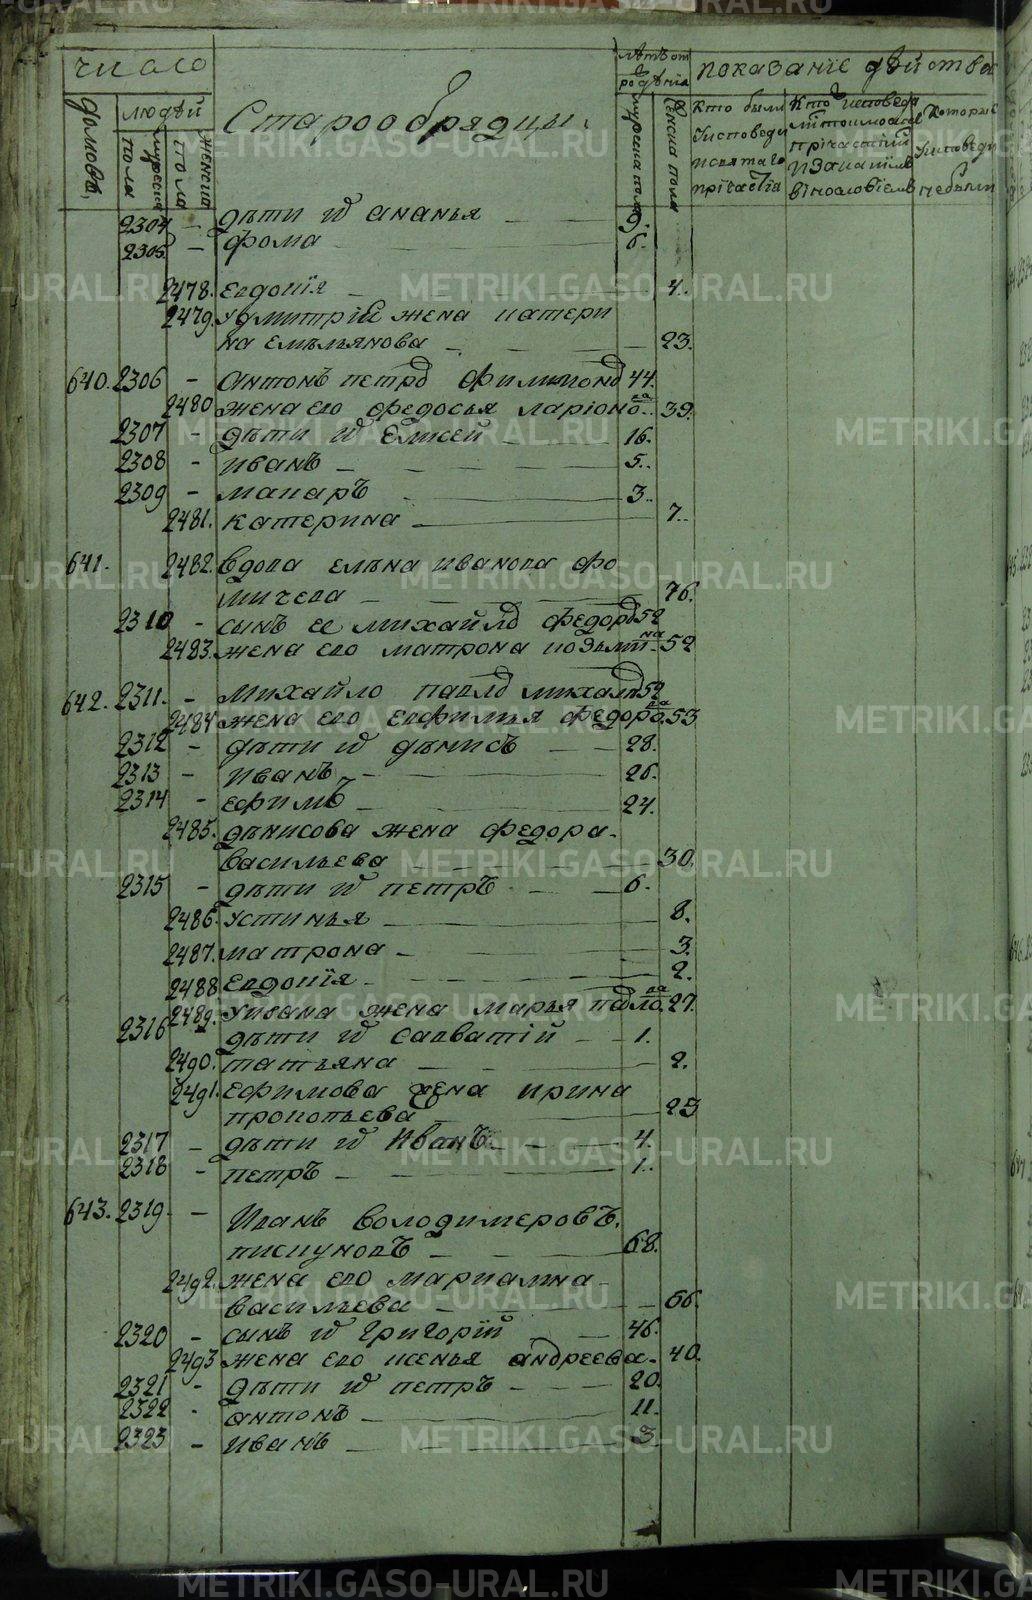 число
Старообрядцы.
лѣтъ от рожденiя
показанiе дѣйства
домовъ
людей
мужеска пола
женска пола
мужеска пола
женска пола
Кто были
у исповеди
и святаго
причастiя
Кто исповеда
причастiи
и за каким
винословiем
Которые
у исповеди
не были
2304 — дѣти их ананья — — 9.
2305 — фома — — 6.
2478. евдокiя — — 4.
2479. у дмитрiя жена катери
на емельянова — — 23.
640. 2306 — антонъ петров филимонов 44.
2480 жена его федосья ларионова 39.
2307 — дѣти их Елисей — 16.
2308 — иванъ — — 5.
2309 — макаръ — 3.
2481. катерина — 7.
641. 2482. вдова елена иванова фо
мичева — — 76.
2310 — сынъ ее михайло федоров 52
2483. жена его матрона 52
642. 2311. — михайло павлов михалев 52
2484 жена его евфимья федорова 53
2312 — дѣти их денисъ — — 28.
2313 — иванъ — 26.
2314 — ефимъ — 24.
2485. денисова жена федора
васильева — — 30.
2315 — дѣти их петръ — — 6.
2486. устинья — 8.
2487. матрона — 3.
2488 евдокiя — 2.
2489. у ивана жена марья павлова 27.
2316 — дѣти их савватiй — — 1.
2490. татьяна — — 2.
2491. ефимова жена ирина
прокопьева — 25
2317 — дѣти их Иванъ — — 4.
2318 — петръ — — 1.
643. 2319. — Иванъ володимеровъ
пискуновъ — — 68.
2492. жена его мариамна
васильева — — 66.
2320 — сынъ их григорiй — 46.
2493 жена его ксенья андреева. 40.
2321 — дѣти их петръ — — 20.
2322 — антонъ — 11.
2323 — иванъ — — 3.
METRIKI.GASO-URAL.RU